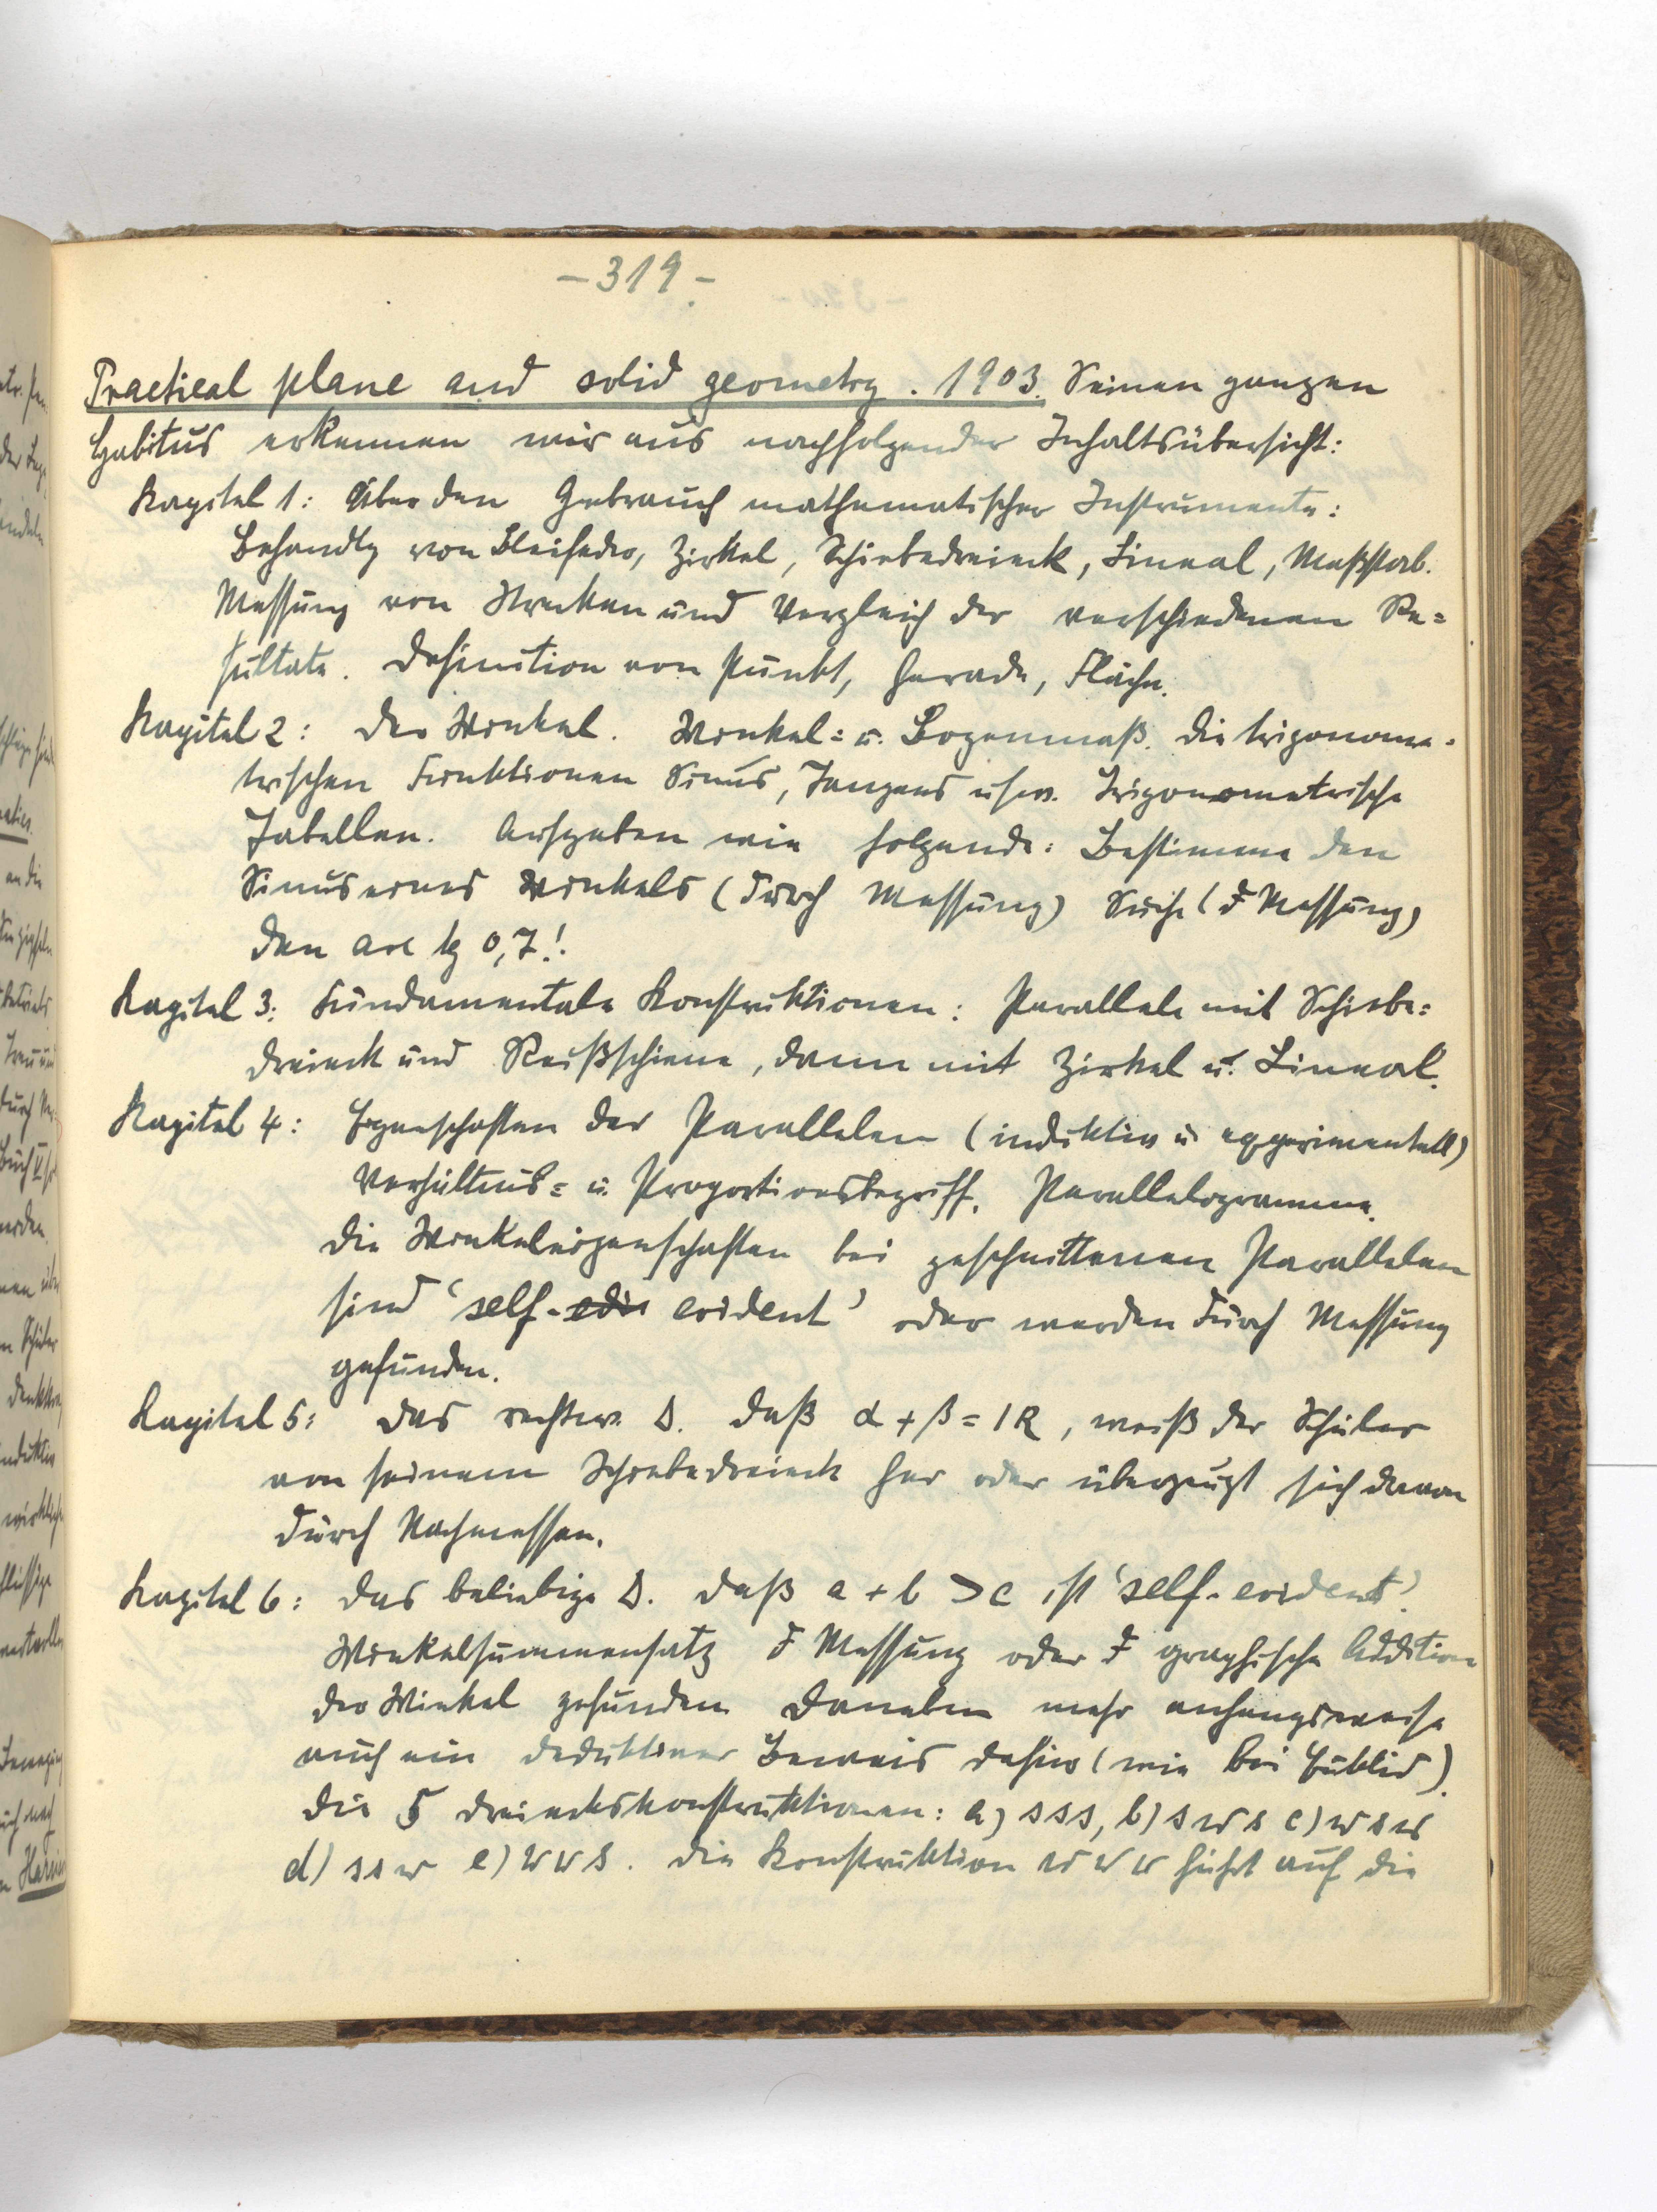 – 319 –
Practical plane and solid geometry. 1903. Seinen ganzen
Habitus erkennen wir aus nachfolgender Inhaltsübersicht:
Kapitel 1: Über den Gebrauch mathematischer Instrumente:
Behandlg von Bleifeder, Zirkel, Schiebedreieck, Lineal, Maßstab.
Messung von Strecken und Vergleich der verschiedenen Re=
sultate. Definition von Punkt, Gerade, Fläche.
Kapitel 2: Der Winkel. Winkel= u. Bogenmaß. Die trigonome=
trischen Funktionen Sinus, Tangens usw. Trigonometrische
Tabellen. Aufgaben wie folgende: Bestimme den
Sinus eines Winkels (durch Messung) Suche (d Messung)
den arc tg 0,7!
Kapitel 3: Fundamentale Konstruktionen: Parallele mit Schiebe=
dreieck und Reißschiene, dann mit Zirkel u. Lineal.
Kapitel 4: Eigenschaften der Parallelen (induktiv u. experimentell)
Verhältnis= u. Proportionsbegriff. Parallelogramme.
Die Winkeleigenschaften bei geschnittenen Parallelen
sind 'self-edi evident' oder werden durch Messung
gefunden.
Kapitel 5: Das rechtw. Δ. Daß α + β = 1R, weiß der Schüler
von seinem Schiebedreieck her oder überzeugt sich davon
durch Nachmessen.
Kapitel 6: Das beliebige Δ. Daß a + b > c ist 'self-evident'.
Winkelsummensatz d Messung oder d graphische Addition
der Winkel gefunden. Daneben mehr anhangsweise
auch ein deduktiver Beweis dafür (wie bei Euklid).
Die 5 Dreieckskonstruktionen: a) sss, b) sws c) wsw
d) ssw e) wws. Die Konstruktion www führt auf die